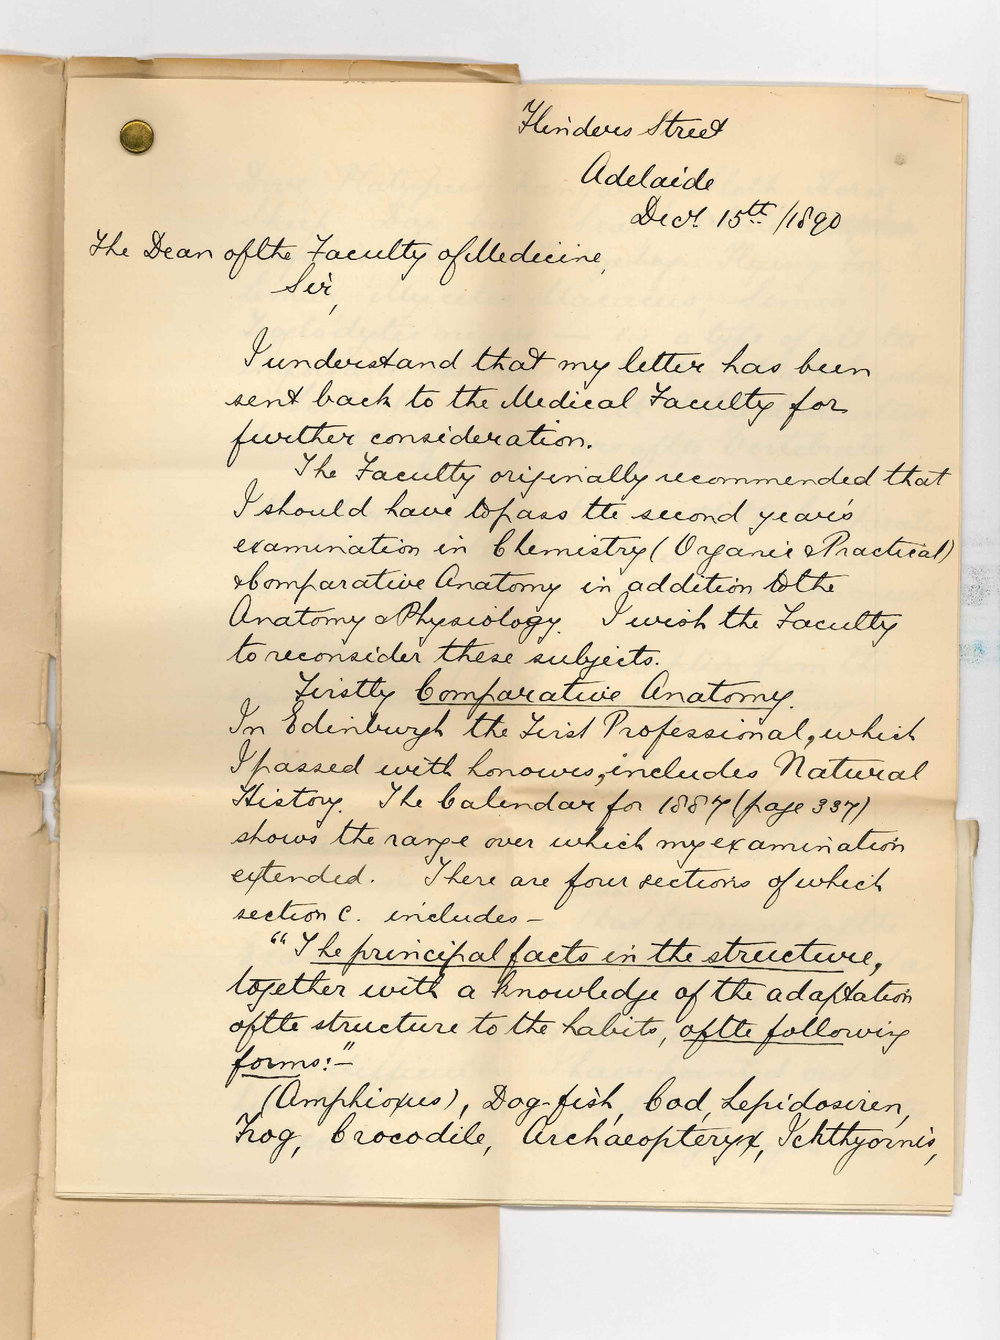 Flinders Street
Adelaide
Decr. 15th /1890
The Dean of the Faculty of Medicine,
Sir,
I understand that my letter has been
sent back to the Medical Faculty for
further consideration.
The Faculty originally recommended that
I should have to pass the second year's
examination in Chemistry (Organic & Practical)
& Comparative Anatomy in addition to the
Anatomy & Physiology. I wish the Faculty
to reconsider these subjects.
Firstly Comparative Anatomy.
In Edinburgh the First Professional, which
I passed with honours, includes Natural
History. The Calendar for 1887 (page 337)
shows the range over which my examination
extended. There are four sections of which
section C. includes –
"The principal facts in the structure,
together with a knowledge of the adaptation
of the structure to the habits, of the following
forms:"–
(Amphioxus), Dog-fish, Cod, Lepidosiren,
Frog, Crocodile, Archaeopteryx, Ichthyornis,